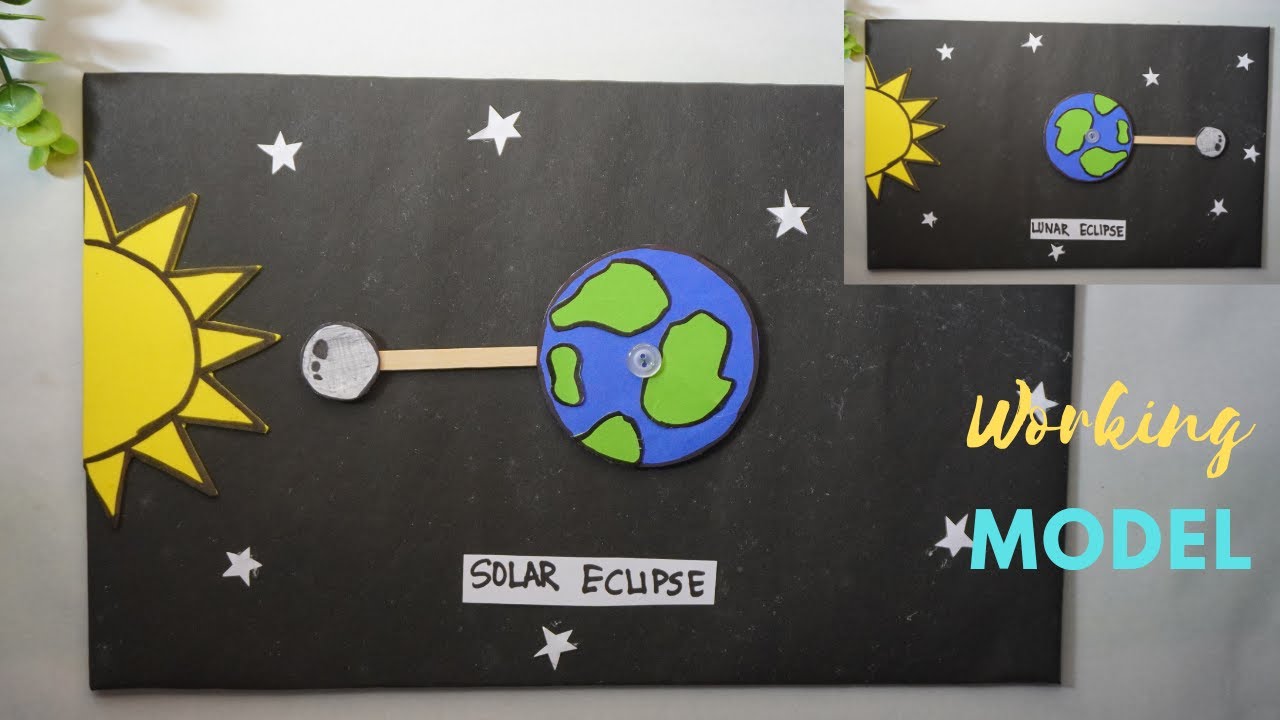 LUNAR ECLIPSE
Working
MODEL
SOLAR ECLIPSE